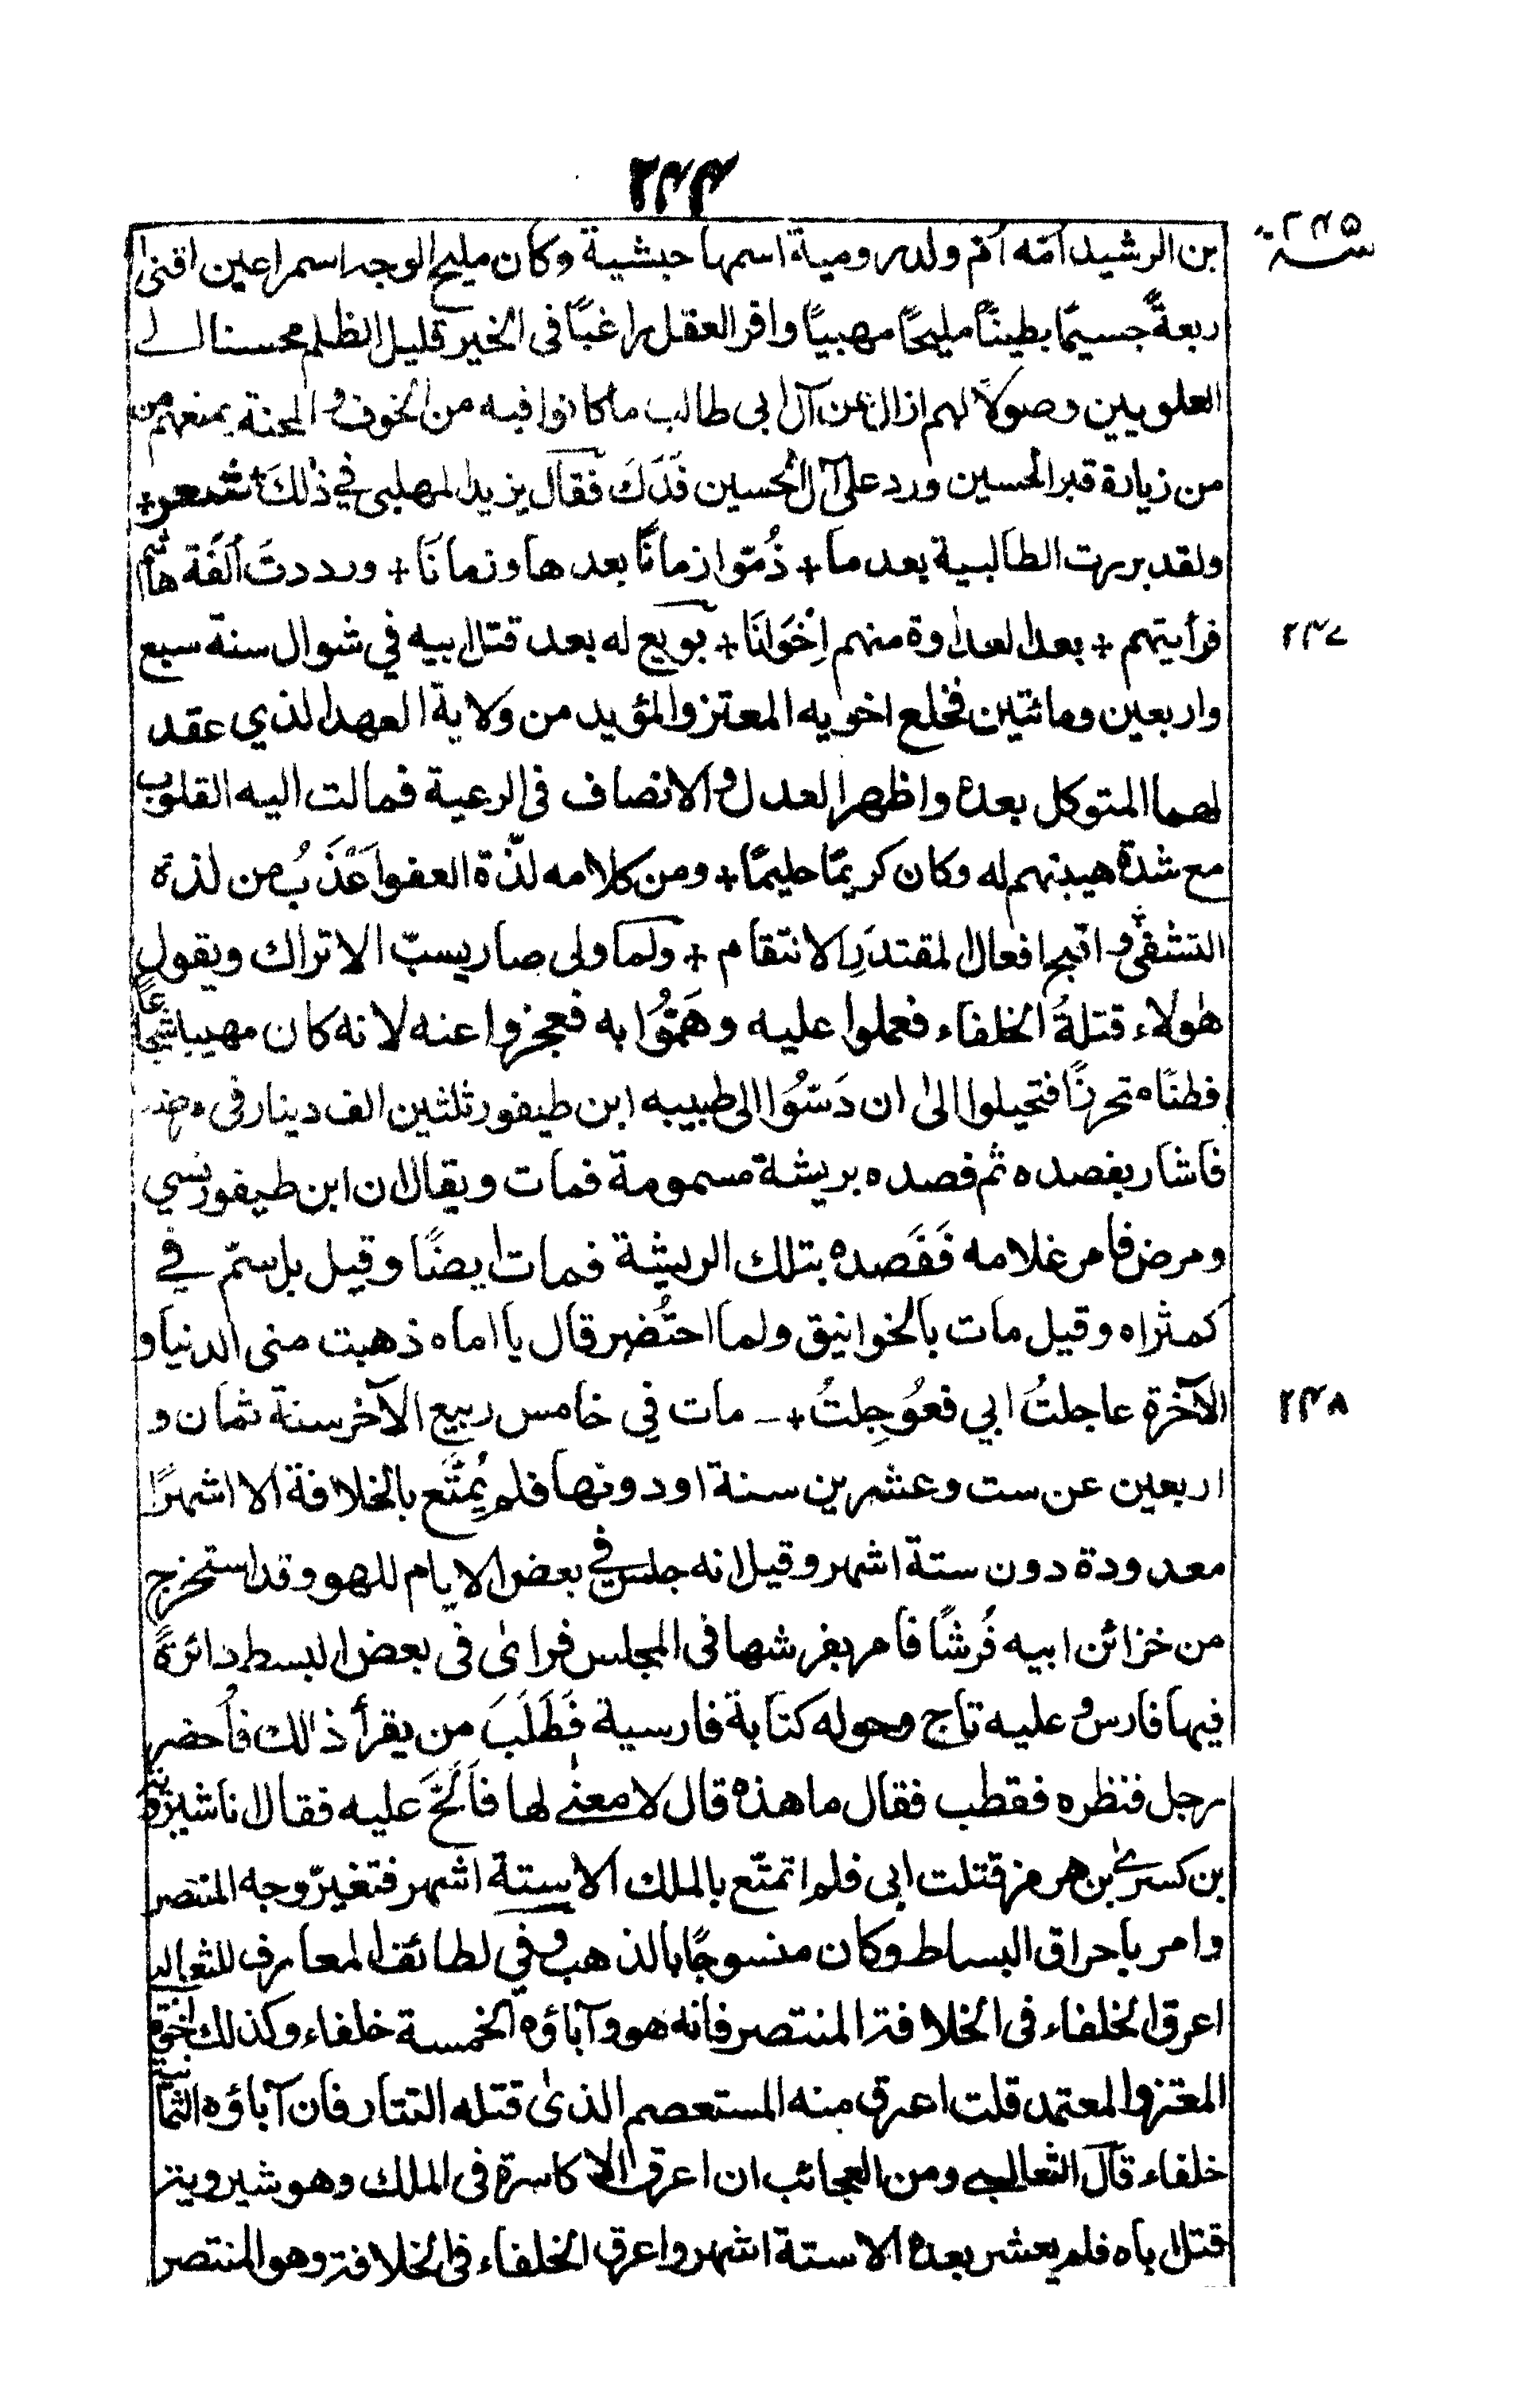 ٢٤٤
سنة ٢٤٥
بن الرشيد امّه اُمّ ولد رومية اسمها حبشية وكان مليح الوجه اسمر اعين اقنى
ربعةً جسيمًا بطينًا مليحًا مهيبًا وافر العقل راغبًا فى الخير قليل الظلم محسنا الى
العلويين وصولًا لهم ازال عن آل ابى طالب ما كانوا فيه من الخوف والمحنة بمنعهم من
من زيارة قبر الحسين ورد على آل الحسين فَدَكَ فقال يزيد المهلبى في ذٰلكَ شعر+
ولقد بررت الطالبية بعد ما + ذُمّوا زمانًا بعدها وزمانَا + ورددتَ اُلفَة هاشم
فرأيتهم + بعد العداوة منهم اِخْوَانَا + بويع له بعد قتل ابيه في شوال سنة سبع
٢٤٧
واربعين ومائتين فخلع اخويه المعتز والمؤيد من ولاية العهد الذي عقد
لهما المتوكل بعده واظهر العدل والانصاف فى الرعية فمالت اليه القلوب
مع شدة هيبتهم له وكان كريمًا حليمًا + ومن كلامه لذّة العفو اَعْذَبُ من لذة
التشفى واقبح افعال المقتدرِ الانتقام + ولما ولى صار يسبّ الاتراك ويقول
هٰولاء قتلةُ الخلفاء فعملوا عليه وهَمّوُا به فعجزوا عنه لانه كان مهيبا شجاعًا
فطنًا متحرزًا فتحيلوا الىٰ ان دَسُّوا الى طبيبه ابن طيفور ثلثين الف دينار فى مرضه
فاشار بفصده ثم فصده بريشة مسمومة فمات ويقال ان ابن طيفور نسي
ومرض فامر غلامه فَفَصده بتلك الريشة فمات ايضًا وقيل بل سمّ في
كمثراه وقيل مات بالخوانيق ولما احتُضر قال يا اماه ذهبت منى الدنيا و
الآخرة عاجلتُ ابي فعُوجِلتُ + - مات في خامس ربيع الآخر سنة ثمان و
٢٤٨
اربعين عن ست وعشرين سنة او دونها فلم يُمتَّع بالخلافة الا اشهرًا
معدودة دون ستة اشهر وقيل انه جلس في بعض الايام للهو وقد استخرج
من خزائن ابيه فُرشًا فامر بفرشها فى المجلس فراىٰ فى بعض البسط دائرةً
فيها فارس وعليه تاج وحوله كتابة فارسية فَطَلَبَ من يقرأ ذالك فاُحضر
رجل فنظره فقطب فقال ما هذه قال لا معنى لها فاَلَحَّ عليه فقال انا شيرويه
بن كسرىٰ بن هرمز قتلت ابى فلم اتمتّع بالملك الا ستة اشهر فتغيّر وجه المنتصر
وامر باحراق البساط وكان منسوجًا بالذهب وفي لطائف المعارف للثعالبى
اعرق الخلفاء فى الخلافة المنتصر فانه هو وآباؤه الخمسة خلفاء وكذلك اخوه
المعتز والمعتمد قلت اعرق منه المستعصم الذىٰ قتله التتار فان آباؤه الثمانية
خلفاء قال الثعالبى ومن العجائب ان اعرق الاكاسرة فى الملك وهو شيرويه
قتل اباه فلم يعش بعده الا ستة اشهر واعرق الخلفاء فى الخلافة وهو المنتصر